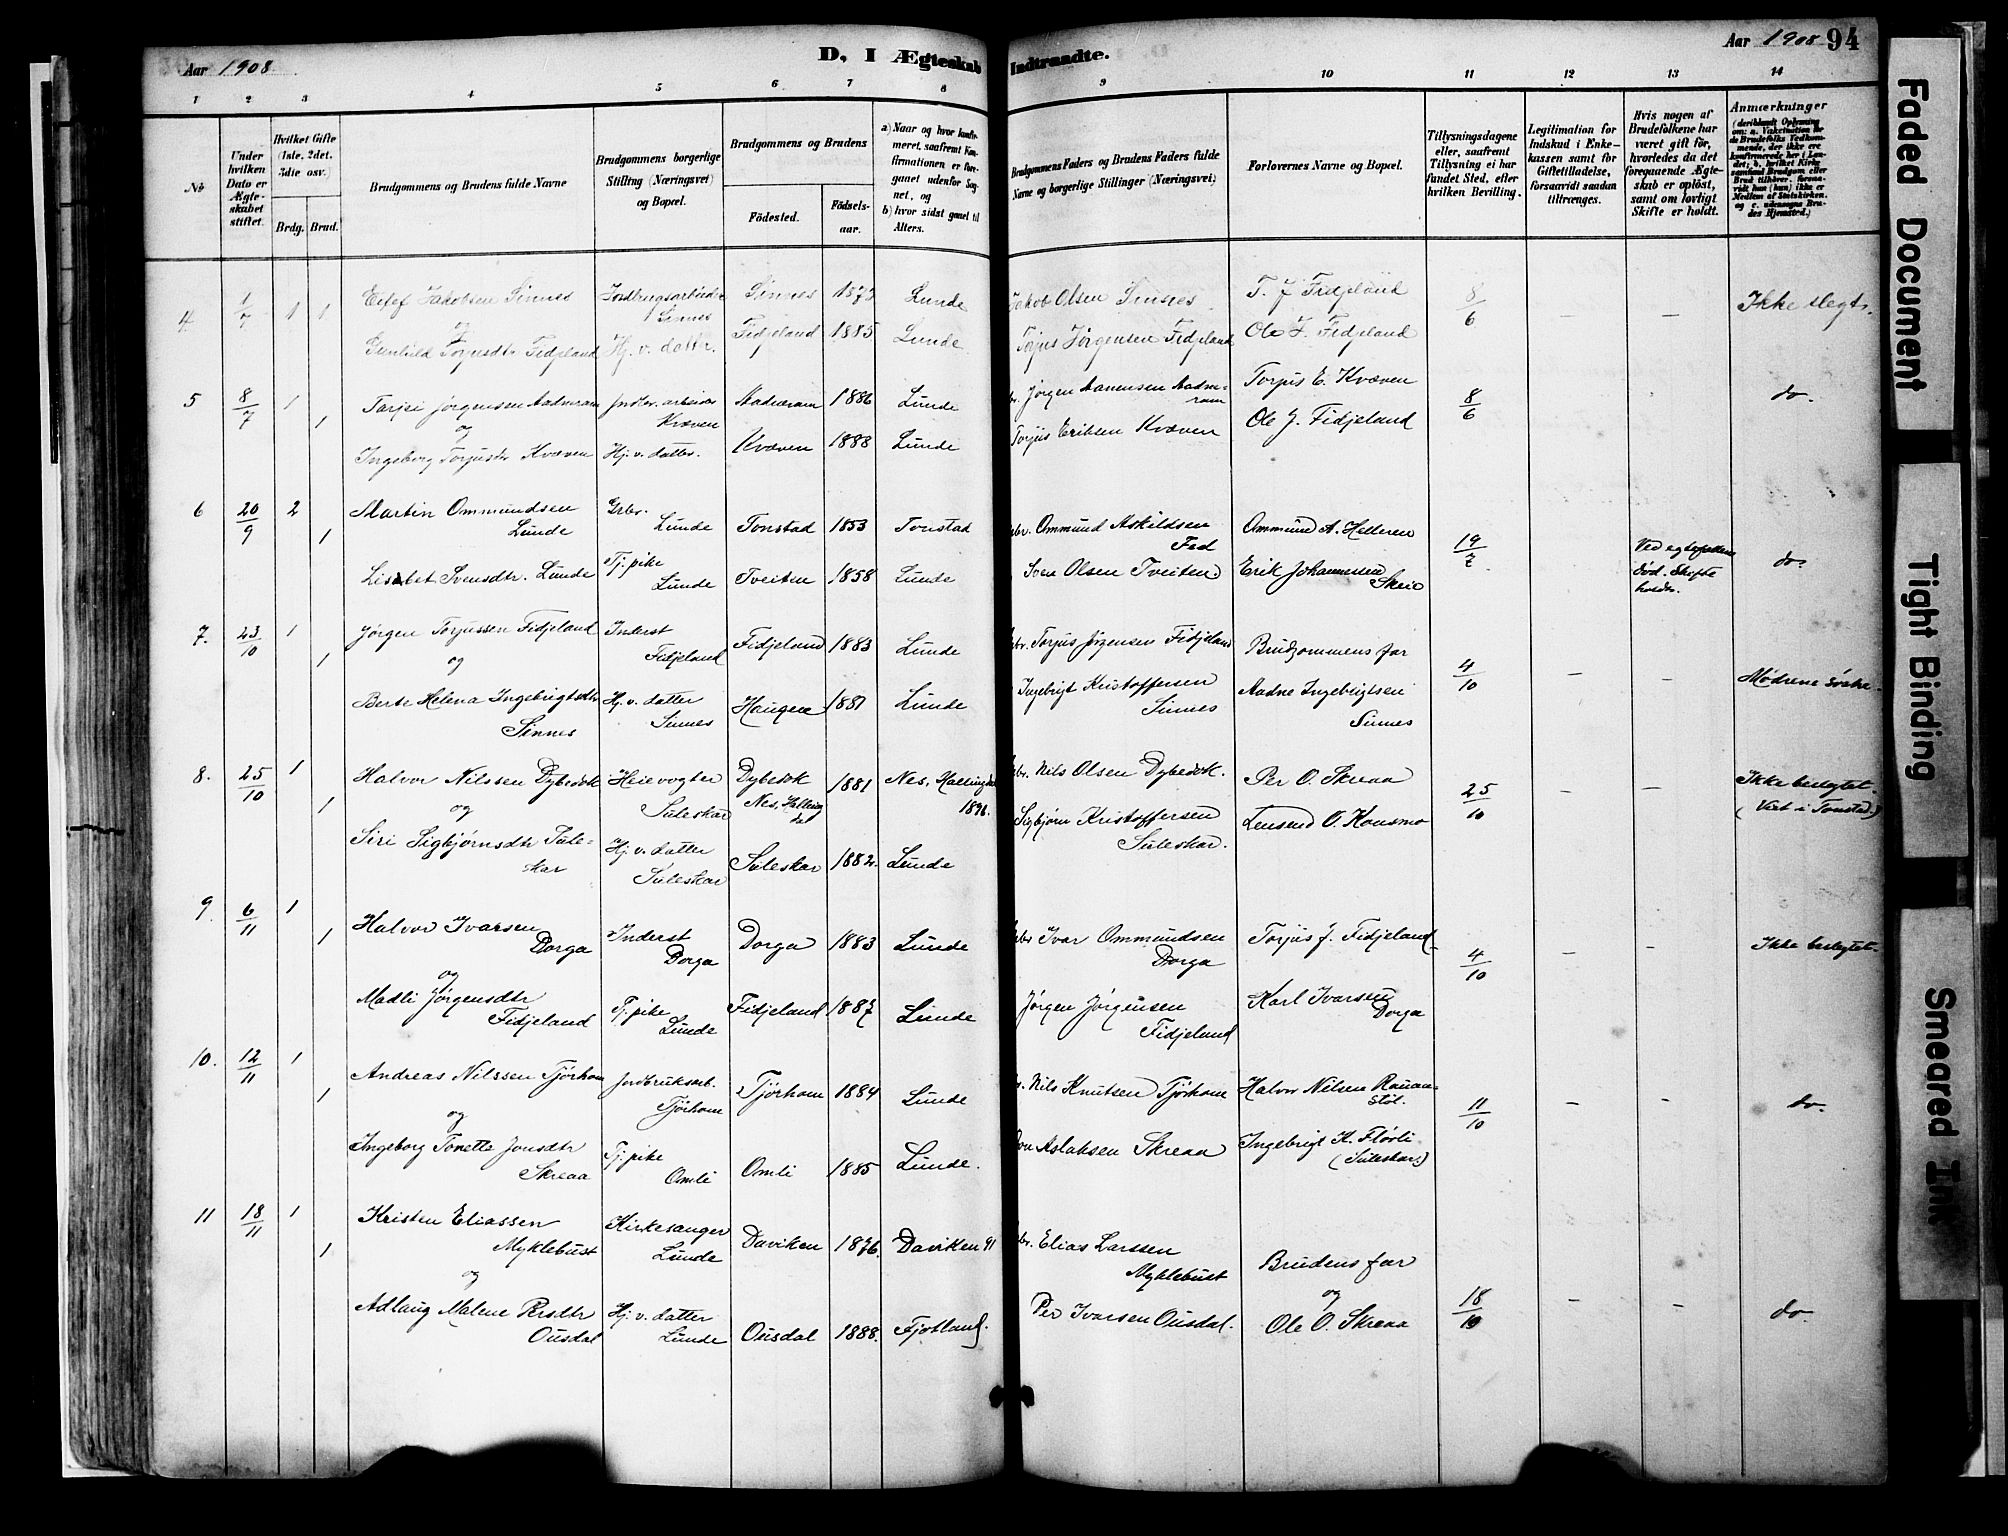 Aar 1908.
D. I Ægteskab
Indtraadte.
Aar 1908 94
1 2 3 4 5 6 7 8 9 10 11 12 13 14
No
Under hvilken Dato er Ægteskabet stiftet.
Hvilket Gifte (1ste, 2det, 3die osv.)
Brdg. Brud.
Brudgommens og Brudens fulde Navne
Brudgommens borgerlige Stilling (Næringsvei) og Bopæl.
Brudgommens og Brudens
Födested.
Födsels-aar.
a) Naar og hvor konfirmeret, saafremt Konfirmationen er foregaaet udenfor Sognet, og
b) hvor sidst gaaet til Alters.
Brudgommens Faders og Brudens Faders fulde Navne og borgerlige Stillinger (Næringsvei)
Forlovernes Navne og Bopæl.
Tillysningsdagene eller, saafremt Tillysning ei har fundet Sted, efter hvilken Bevilling.
Legitimation for Indskud i Enkekassen samt for Giftetilladelse, forsaavidt saadan tiltrænges.
Hvis nogen af Brudefolkene har været gift før, hvorledes da det foregaaende Ægteskab er oplöst, samt om lovligt Skifte er holdt.
Anmærkninger
4 1/7 1 1 Eilef Jakobsen Sinnes Jordbrugsarbeider Sinnes Sinnes 1873 Lunde Jakob Olsen Sinnes T. J. Fidjeland 8/6 – – Ikke slegt.
og
Gunhild Torjusdtr Fidjeland Hj. v. dattr. Fidjeland 1885 Lunde Torjus Jörgensen Fidjeland Ole J. Fidjeland
5 8/7 1 1 Tarjei Jørgensen Aadneram Jordbr. arbeider Kvæven 1886 Lunde Jørgen Aanensen Aadneram Torjus E. Kvæven 8/6 do.
og
Ingeborg Torjusdtr Kvæven Hj. v. datter. Kvæven 1888 Lunde Torjus Eriksen Kvæven Ole J. Fidjeland
6 20/9 2 1 Martin Ommundsen Lunde Grbr. Lunde Tonstad 1853 Tonstad Ommund Askildsen Fed Ommund A. Helleren 19/7 Ved egtefellens död. Skifte holdt. do.
Lisabet Svensdtr. Lunde Tj. pike Lunde Tveiten 1858 Lunde Sven Olsen Tveiten Erik Johannessen Skeie
7. 23/10 1 1 Jørgen Torjussen Fidjeland Inderst Fidjeland Fidjeland 1883 Lunde Torjus Jørgensen Fidjeland Brudgommens far 4/10 – – Mødrene søstre.
og
Berte Helena Ingebrigtsdtr Sinnes Hj. v. datter Sinnes Haugen 1881 Lunde Ingebrigt Kristoffersen Sinnes Aadne Ingebrigtsen Sinnes
8. 25/10 1 1 Halvor Nilssen Dybedok Heievogter Suleskar Dybedok Nes, Hallingdal 1881 Nes, Hallingdal 1896. Nils Olsen Dybedok. Per O. Skreaa 25/10 – – Ikke beslegtet. (Viet i Tonstad.)
og
Siri Sigbjørnsdtr Suleskar Hj. v. datter Suleskar Suleskar 1882. Lunde Sigbjørn Kristoffersen Suleskar. O. Kousmo
9. 6/11 1 1 Halvor Ivarsen Dorga Inderst Dorga Dorga 1883 Lunde Ivar Ommundsen Dorga Torjus J. Fidjeland 4/10 – – Ikke beslegtet
og
Madli Jørgensdtr Fidjeland Tj. pike Lunde Fidjeland 1887 Lunde Jørgen Jørgensen Fidjeland Karl Ivarsen Dorga
10. 12/11 1 1 Andreas Nilssen Tjørhom Jordbruksarb. Tjørhom Tjørhom 1884 Lunde Nils Knutsen Tjørhom Halvor Nilsen Rauanstöl. 11/10 – – do.
og
Ingeborg Tonette Jonsdtr Skreaa Tj. pike Omli Omli 1885 Lunde. Jon Aslaksen Skreaa Ingebrigt K. Flørli (Suleskar.)
11 18/11 1 1 Kristen Eliassen Myklebust Kirkesanger Lunde Daviken 1876. Daviken 91 Elias Larssen Myklebust Brudens far 18/10 – – do.
og og
Adlaug Malene Persdtr Ousdal Hj. v. datter Lunde Ousdal 1888. Fjotland. Per Ivarsen Ousdal. Ole O. Skreaa
Faded Document
Tight Binding
Smeared Ink